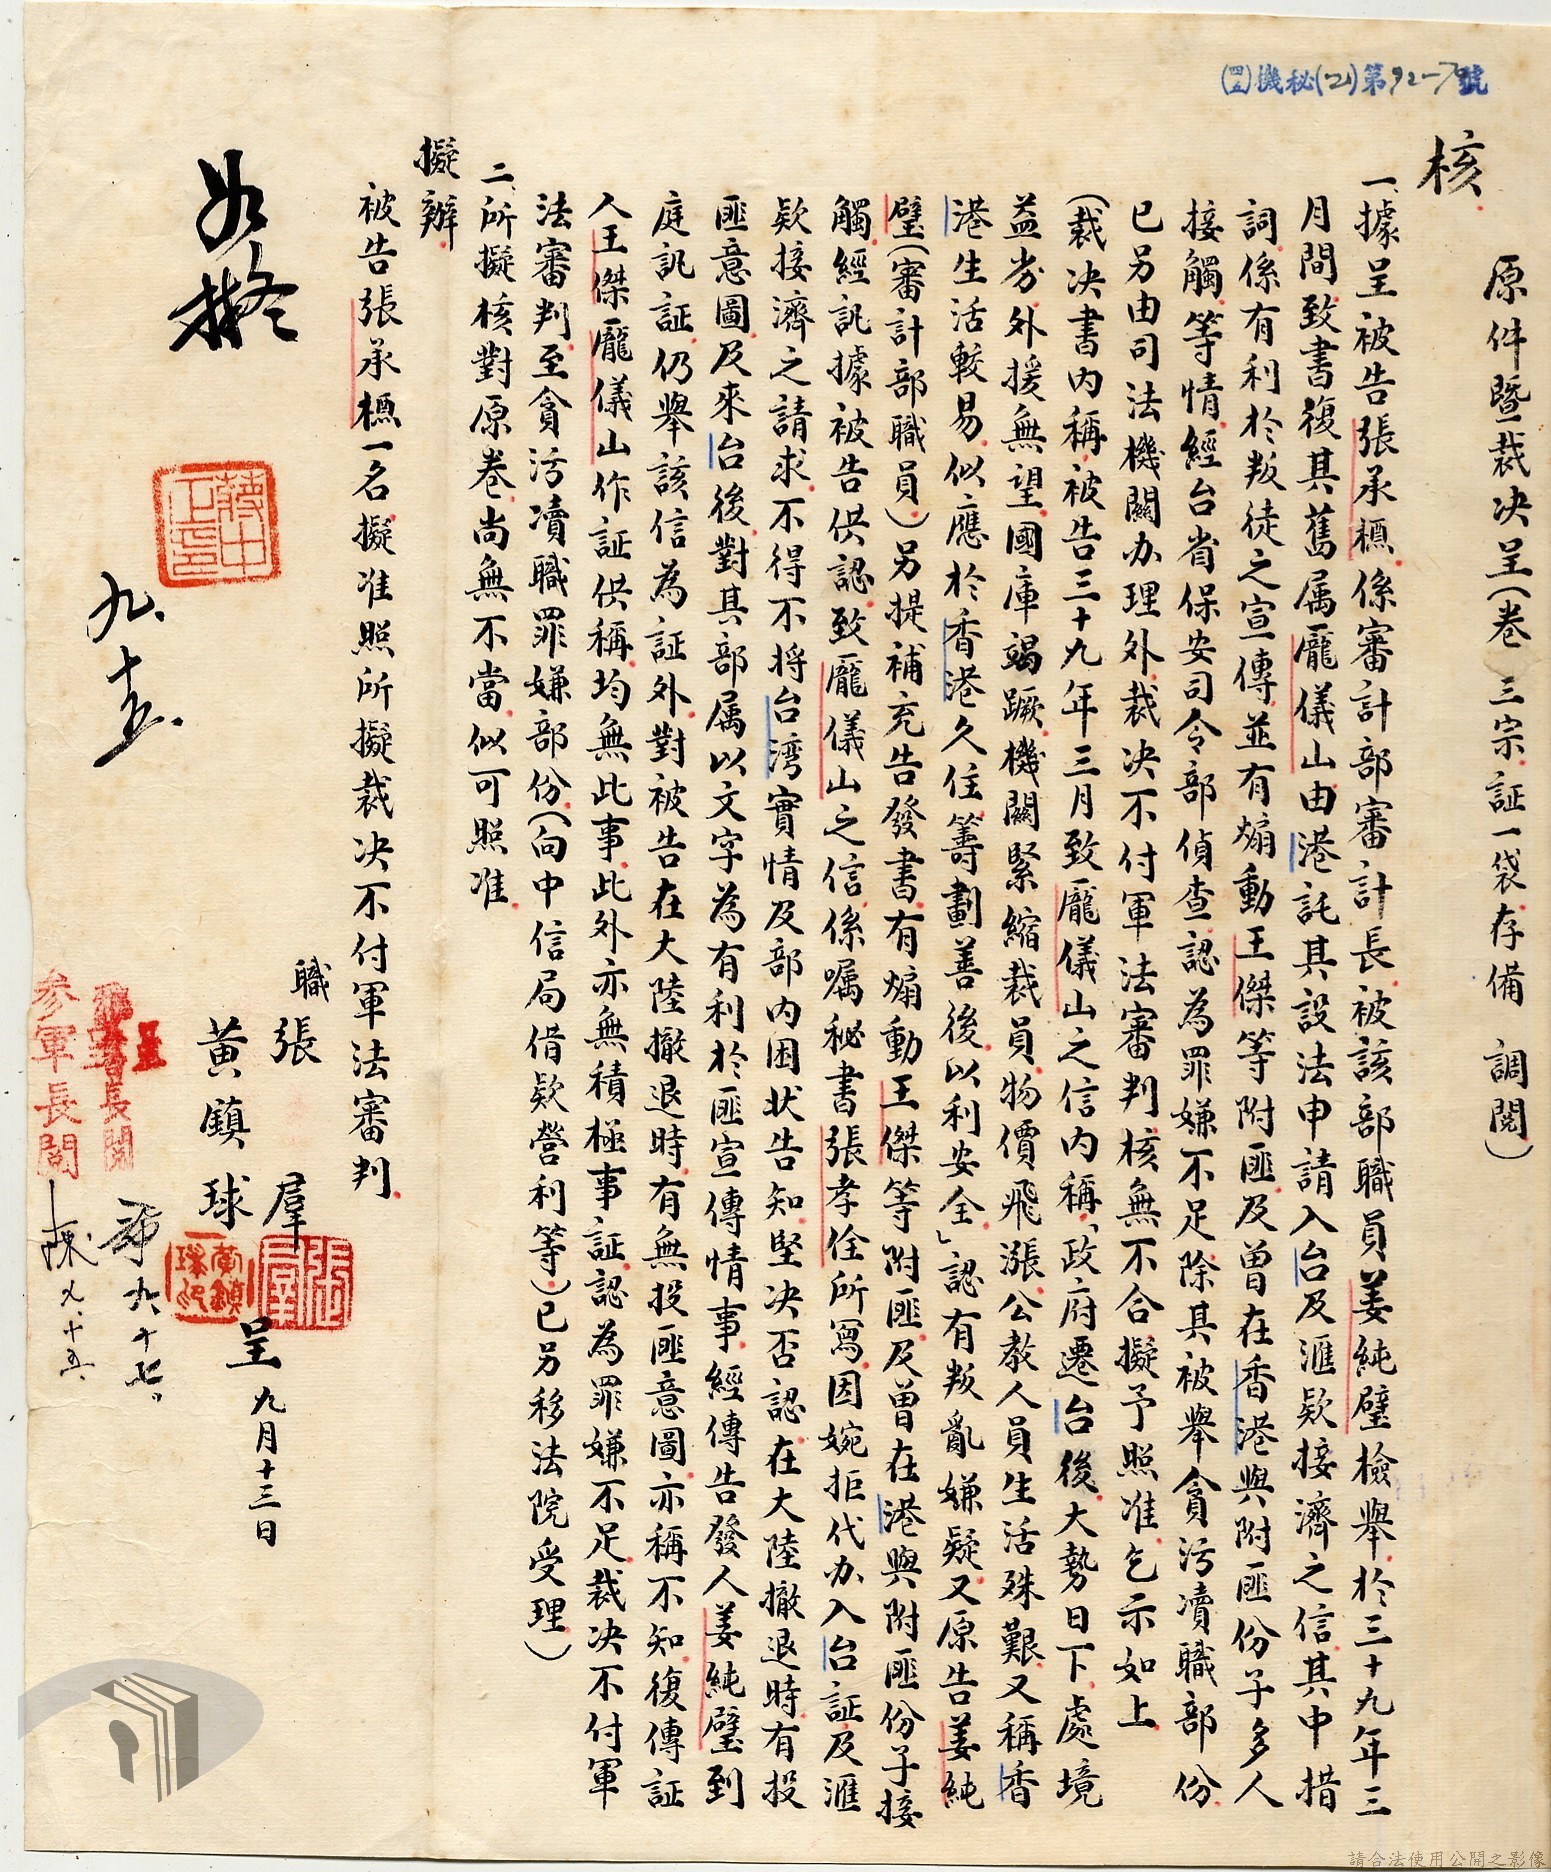 (四五)機秘(乙)第92-7號
原件暨裁决呈(卷三宗証一袋存備 調閱)
核
一、據呈被告張承槱係審計部審計長被該部職員姜純璧檢舉於三十九年三
月間致書復其舊属龎儀山由港託其設法申請入台及滙欵接濟之信其中措
詞係有利於叛徒之宣傳並有煽動王傑等附匪及曾在香港與附匪份子多人
接觸等情經台省保安司令部偵查認為罪嫌不足除其被舉貪污瀆職部份
已另由司法機關办理外裁决不付軍法審判核無不合擬予照准乞示如上
(裁决書内稱被告三十九年三月致龎儀山之信内稱「政府遷台後大勢日下處境
益劣外援無望國庫竭蹶機關緊縮裁員物價飛漲公教人員生活殊艱又稱香
港生活較易似應於香港久住籌劃善後以利安全」認有叛亂嫌疑又原告姜純
璧(審計部職員)另提補充告發書有煽動王傑等附匪及曾在港與附匪份子接
觸經訊據被告供認致龎儀山之信係嘱秘書張孝佺所寫因婉拒代办入台証及滙
欵接濟之請求不得不將台湾實情及部内困状告知堅决否認在大陸撤退時有投
匪意圖及來台後對其部属以文字為有利於匪宣傳情事經傳告發人姜純璧到
庭訊証仍舉該信為証外對被告在大陸撤退時有無投匪意圖亦稱不知復傳証
人王傑龎儀山作証供稱均無此事此外亦無積極事証認為罪嫌不足裁决不付軍
法審判至貪污瀆職罪嫌部份(向中信局借欵營利等)已另移法院受理)
二、所擬核對原卷尚無不當似可照准
擬辦
被告張承槱一名擬准照所擬裁决不付軍法審判
職 張 羣
黄鎮球
呈 九月十三日
如擬
蔣中正印
九、十五、
呈
長閱
九、十七、
参軍長閱
九、十五、
請合法使用公開之影像